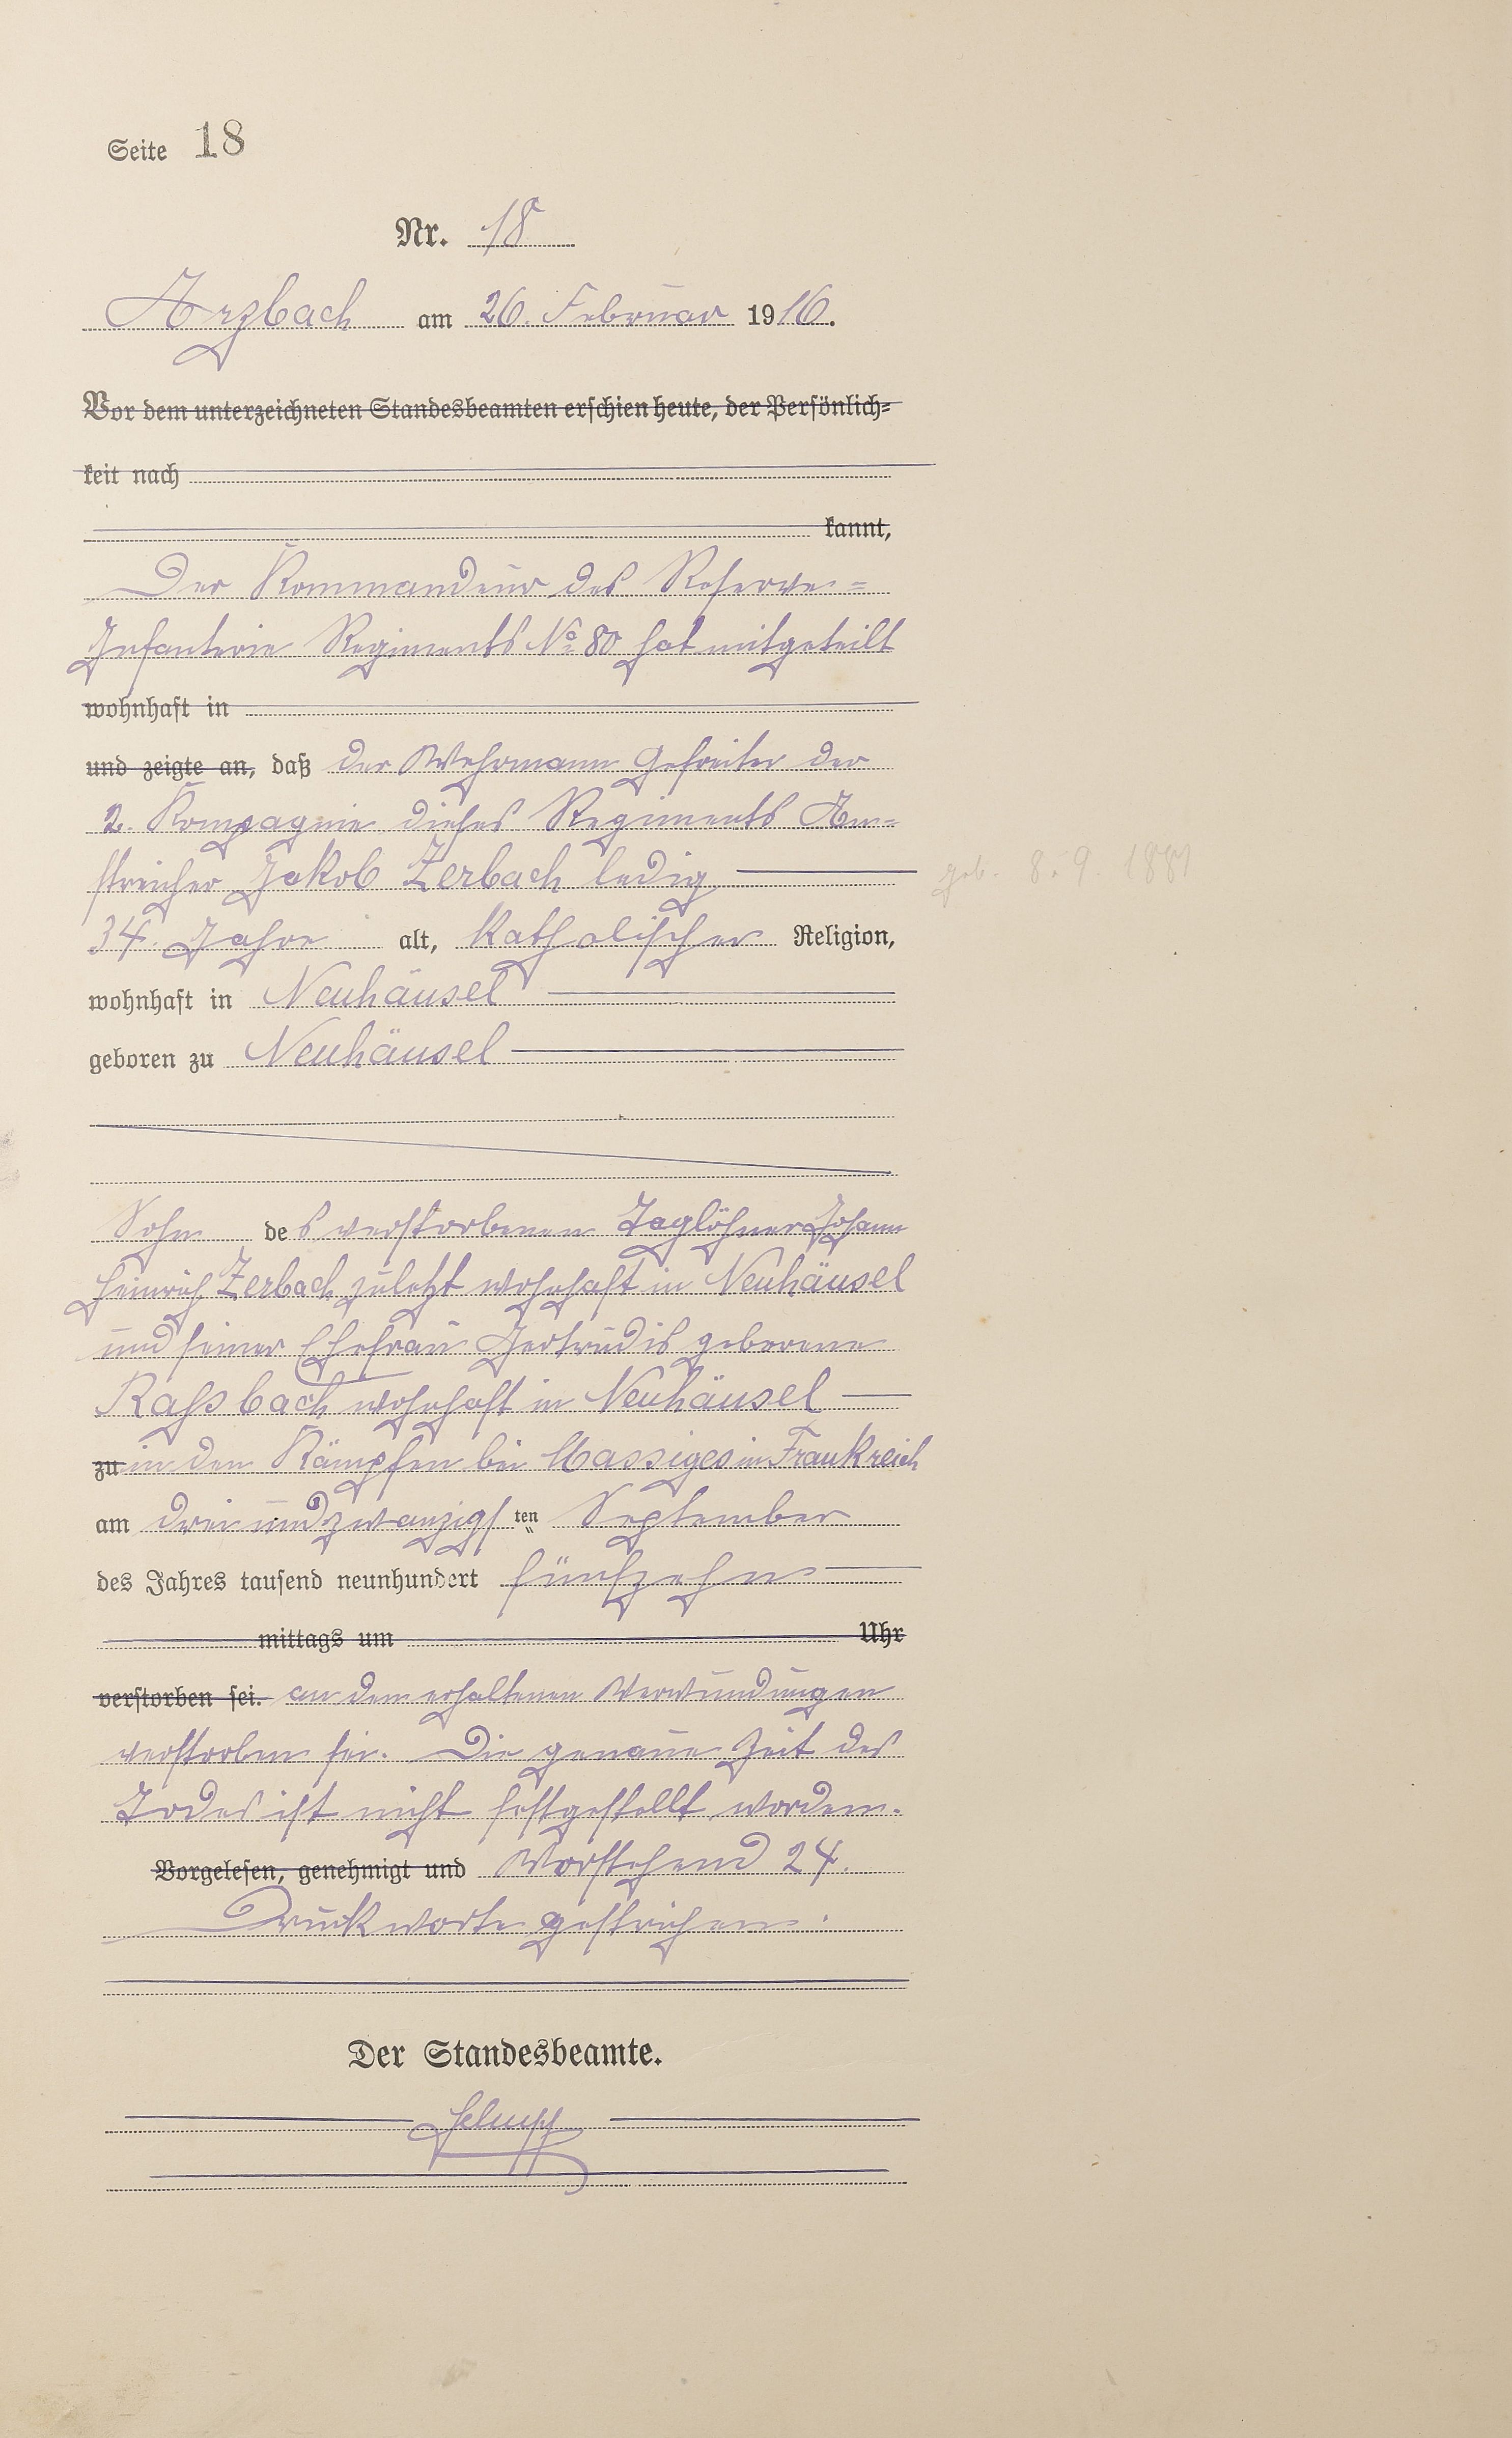 Seite 18
Nr. 18
Arzbach am 26. Februar 1916.
Vor dem unterzeichneten Standesbeamten erschien heute, der Persönlich=
keit nach
kannt,
Der Kommandeur des Reserve=
Infanterie Regiments No 80 hat mitgeteilt
wohnhaft in
und zeigte an, daß der Wehrmann Gefreiter der
2. Kompagnie dieses Regiments An=
streicher Jakob Zerbach ledig
geb. 8.9. 1881
34 Jahre alt, katholischer Religion,
wohnhaft in Neuhäusel
geboren zu Neuhäusel
Sohn des verstorbenen Taglöhner Johann
Heinrich Zerbach zuletzt wohnhaft in Neuhäusel
und seiner Ehefrau Gertrudis geborene
Raßbach wohnhaft in Neuhäusel
zu in den Kämpfen bei Massiges in Frankreich
am dreiundzwanzigsten September
des Jahres tausend neunhundert fünfzehn
mittags um Uhr
verstorben sei. an dem erhaltenen Verwundungen
verstorben sei. Die genaue Zeit des
Todes ist nicht festgestellt worden.
Vorgelesen, genehmigt und Vorstehend 24
Druckworte gestrichen.
Der Standesbeamte.